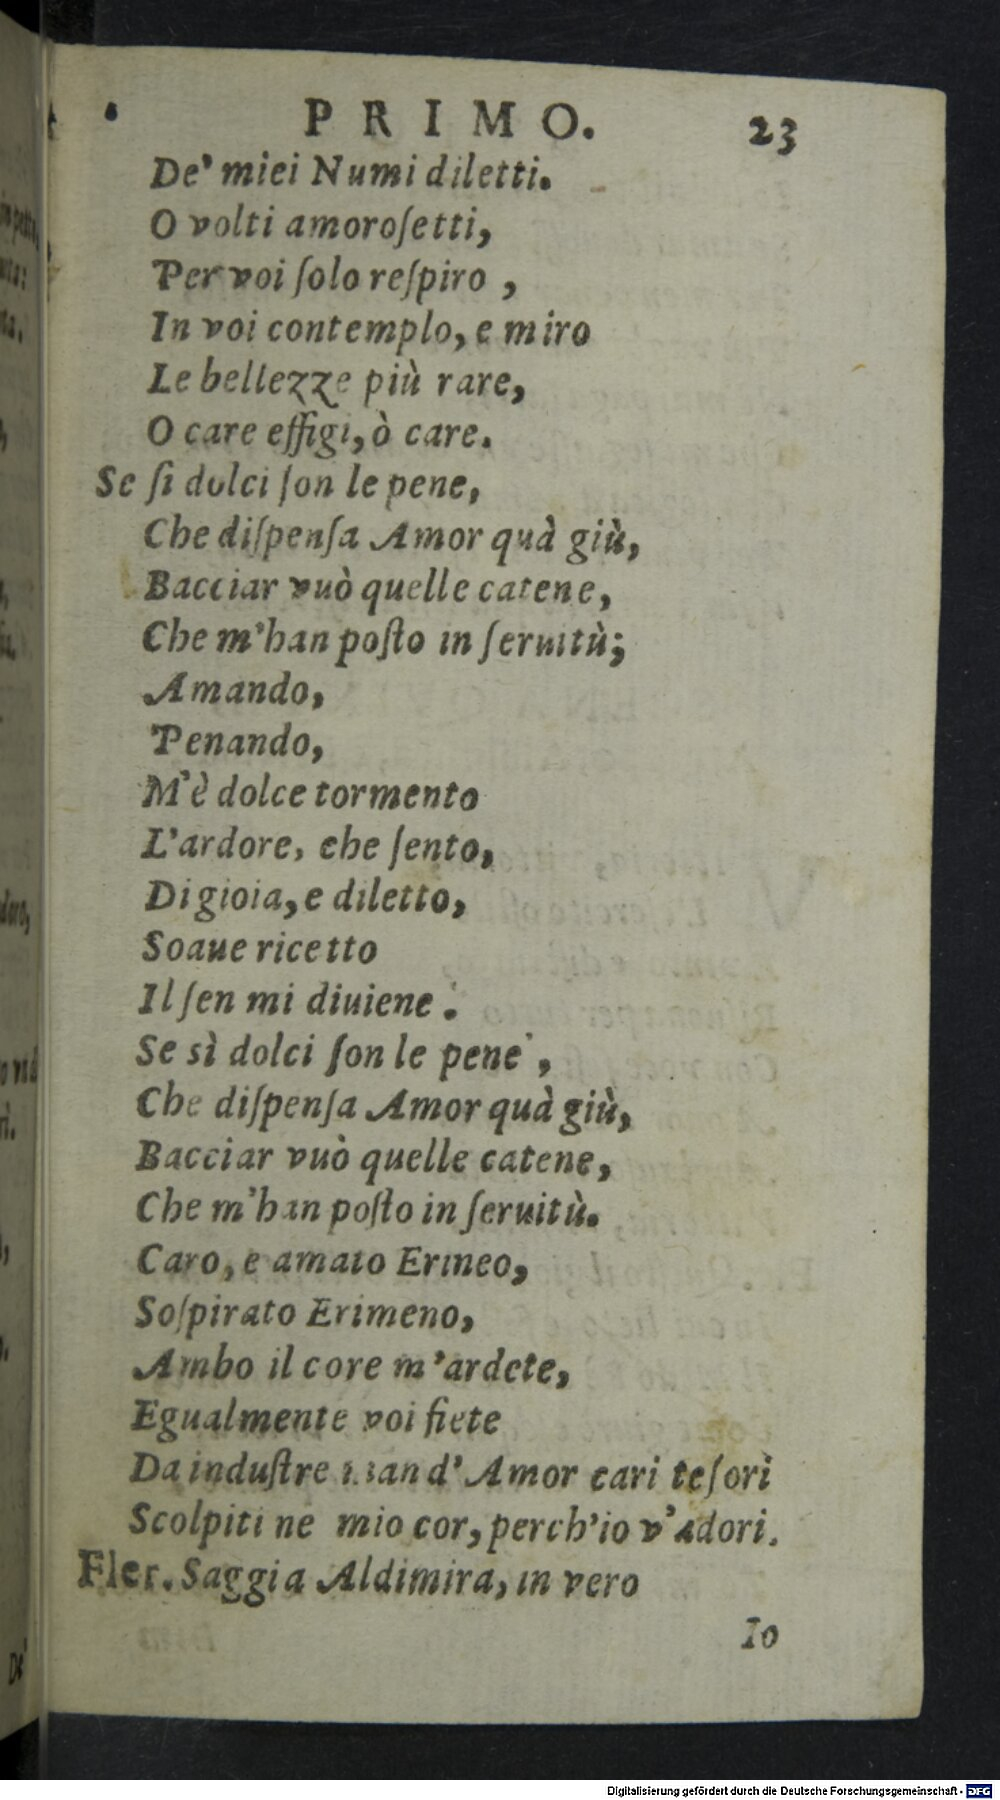 PRIMO. 23
De' miei Numi diletti.
O volti amoroſetti,
Per voi ſolo reſpiro ,
In voi contemplo, e miro
Le bellezze più rare,
O care effigi, ò care.
Se ſi dolci ſon le pene,
Che diſpenſa Amor quà giù,
Bacciar vuò quelle catene,
Che m'han poſto in ſeruitù;
Amando,
Penando,
M'è dolce tormento
L'ardore, che ſento,
Di gioia, e diletto,
Soaue ricetto
Il ſen mi diuiene.
Se sì dolci ſon le pene ,
Che diſpenſa Amor quà giù,
Bacciar vuò quelle catene,
Che m'han poſto in ſeruitù.
Caro, e amato Erineo,
Soſpirato Erimeno,
Ambo il core m'ardete,
Egualmente voi ſiete
Da induſtre man d'Amor cari teſori
Scolpiti ne mio cor, perch'io v'adori.
Fler. Saggia Aldimira, in vero
Io
Digitalisierung gefördert durch die Deutsche Forschungsgemeinschaft - DFG